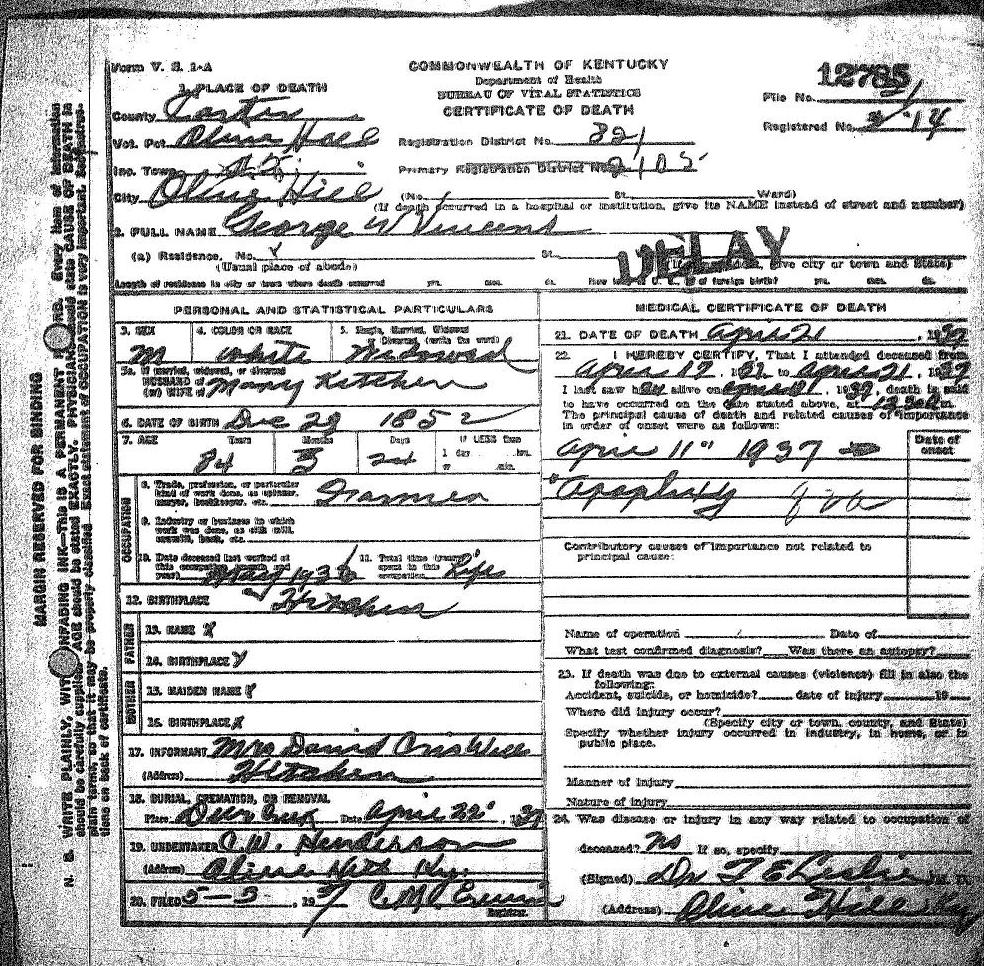 Form V. S. 1-A
COMMONWEALTH OF KENTUCKY
Department of Health
BUREAU OF VITAL STATISTICS
CERTIFICATE OF DEATH
12785
File No.
Registered No. 14
1. PLACE OF DEATH
County Carter
Vot. Pct Olive Hill
Registration District No. 321
Inc. Town
Primary Registration District No. 2105
City Olive Hill (No. St. Ward)
(If death occurred in a hospital or institution, give its NAME instead of street and number)
2. FULL NAME George W Vincent
(a) Residence. No. St.
(Usual place of abode)
DELAY
give city or town and State)
Length of residence in city or town where death occurred yrs. mos. ds. of foreign birth? yrs. mos. ds.
PERSONAL AND STATISTICAL PARTICULARS
3. SEX M
4. COLOR OR RACE White
5. Single, Married, Widowed or Divorced (write the word) Widowed
5a. If married, widowed, or divorced
HUSBAND of
(or) WIFE of Mary Kitchen
6. DATE OF BIRTH Dec 29 1852
7. AGE Years Months Days If LESS than
84 3 1 day hrs.
or min.
OCCUPATION
8. Trade, profession, or particular
kind of work done, as spinner,
sawyer, bookkeeper, etc. Farmer
9. Industry or business in which
work was done, as silk mill,
sawmill, bank, etc.
10. Date deceased last worked at
this occupation (month and
year) May 1936
11. Total time (years)
spent in this
occupation Life
12. BIRTHPLACE Hitchins
FATHER
13. NAME X
14. BIRTHPLACE Y
MOTHER
15. MAIDEN NAME
16. BIRTHPLACE X
17. INFORMANT Mrs David Criswell
(Address) Hitchins
18. BURIAL, CREMATION, OR REMOVAL
Place Date April 22, 1937
19. UNDERTAKER C.W. Henderson
(Address) Olive Hill Ky.
20. FILED 5-3 1937 C.M.
Registrar.
MEDICAL CERTIFICATE OF DEATH
21. DATE OF DEATH April 21, 1937
22. I HEREBY CERTIFY, That I attended deceased from
April 12, 1937 to April 21, 1937
I last saw h alive on April 21, 1937, death is said
to have occurred on the date stated above, at
The principal cause of death and related causes of importance
in order of onset were as follows:
Date of
onset
April 11" 1937
Apoplexy
Contributory causes of importance not related to
principal cause:
Name of operation Date of
What test confirmed diagnosis? Was there an autopsy?
23. If death was due to external causes (violence) fill in also the
following:
Accident, suicide, or homicide? date of injury 19
Where did injury occur?
(Specify city or town, county, and State)
Specify whether injury occurred in industry, in home, or in
public place.
Manner of Injury
Nature of injury
24. Was disease or injury in any way related to occupation of
deceased? No If so, specify
(Signed) Dr T E Leslie M. D.
(Address) Olive Hill Ky
MARGIN RESERVED FOR BINDING
N. B. WRITE PLAINLY, WITH UNFADING INK—THIS IS A PERMANENT RECORD. Every item of information
should be carefully supplied. AGE should be stated EXACTLY. PHYSICIANS should state CAUSE OF DEATH in
plain terms, so that it may be properly classified. Exact statement of OCCUPATION is very important. See instruc-
tions on back of certificate.